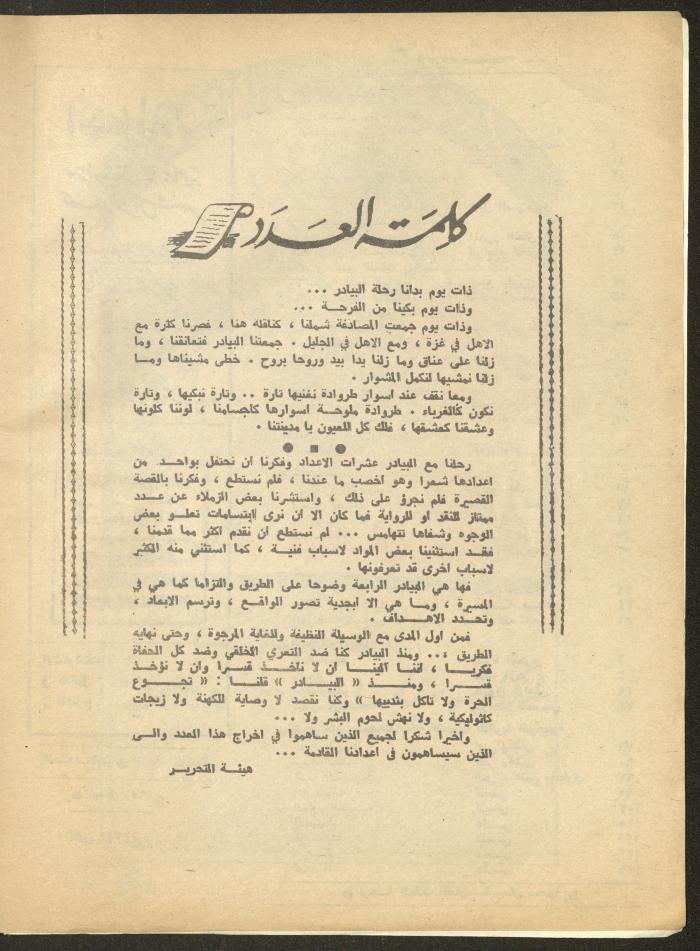 كلمة العدد
ذات يوم بدانا رحلة البيادر ...
وذات يوم بكينا من الفرحـــة ...
وذات يوم جمعت المصادفة شملنا ، كناقله هنا ، فصرنا كثرة مع
الاهل في غزة ، ومع الاهل في الجليل . جمعتنا البيادر فتعانقنا ، وما
زلنا على عناق وما زلنا يدا بيد وروحا بروح . خطى مشيناها ومــا
زلنا نمشيها لنكمل المشوار .
ومعا نقف عند اسوار طروادة نغنيها تارة .. وتارة نبكيها ، وتارة
نكون كالغرباء . طروادة ملوحـة اسوارها كاجسامنا ، لوننا كلونها
وعشقنا كعشقها ، فلك كل العيون يا مدينتنا .
● ■ ●
رحلنا مع البيادر عشرات الاعداد وفكرنا ان نحتفل بواحد من
اعدادها شعرا وهو اخصب ما عندنا ، فلم نستطع ، وفكرنا بالقصة
القصيرة فلم نجرؤ على ذلك ، واستشرنا بعض الزملاء عن عـــدد
ممتاز للنقد او للرواية فما كان الا ان نرى ابتسامات تعلــو بعض
الوجوه وشفاها تتهامس ... لم نستطع ان نقدم اكثر مما قدمنا ،
فقـد استثنينا بعض المواد لاسباب فنيـة ، كما استثني منه الكثير
لاسباب اخرى قد تعرفونها .
فها هي البيادر الرابعة وضوحا على الطريق والتزاما كما هي في
المسيرة ، ومــا هي الا ابجدية تصور الواقــع ، وترسم الابعاد ،
وتحدد الاهــداف .
فمن اول المدى مع الوسيلة النظيفة وللغاية المرجوة ، وحتى نهايه
الطريق ... ومنذ البيادر كنا ضد التعري الخلقي وضد كل الحفاة
فكريــا ، اننــا الينــا ان لا ناخــذ قسرا وان لا نؤخــذ
قســرا ، ومنــذ « البيــادر » قلنــا : « تجــوع
الحرة ولا تاكل بثدييها » وكنا نقصد لا وصاية للكهنة ولا زيجات
كاثوليكية ، ولا نهش لحوم البشر ولا ...
واخيرا شكرا لجميع الذين ساهموا في اخراج هذا العدد والــى
الذين سيساهمون في اعدادنا القادمة ...
هيئـة التحريـر